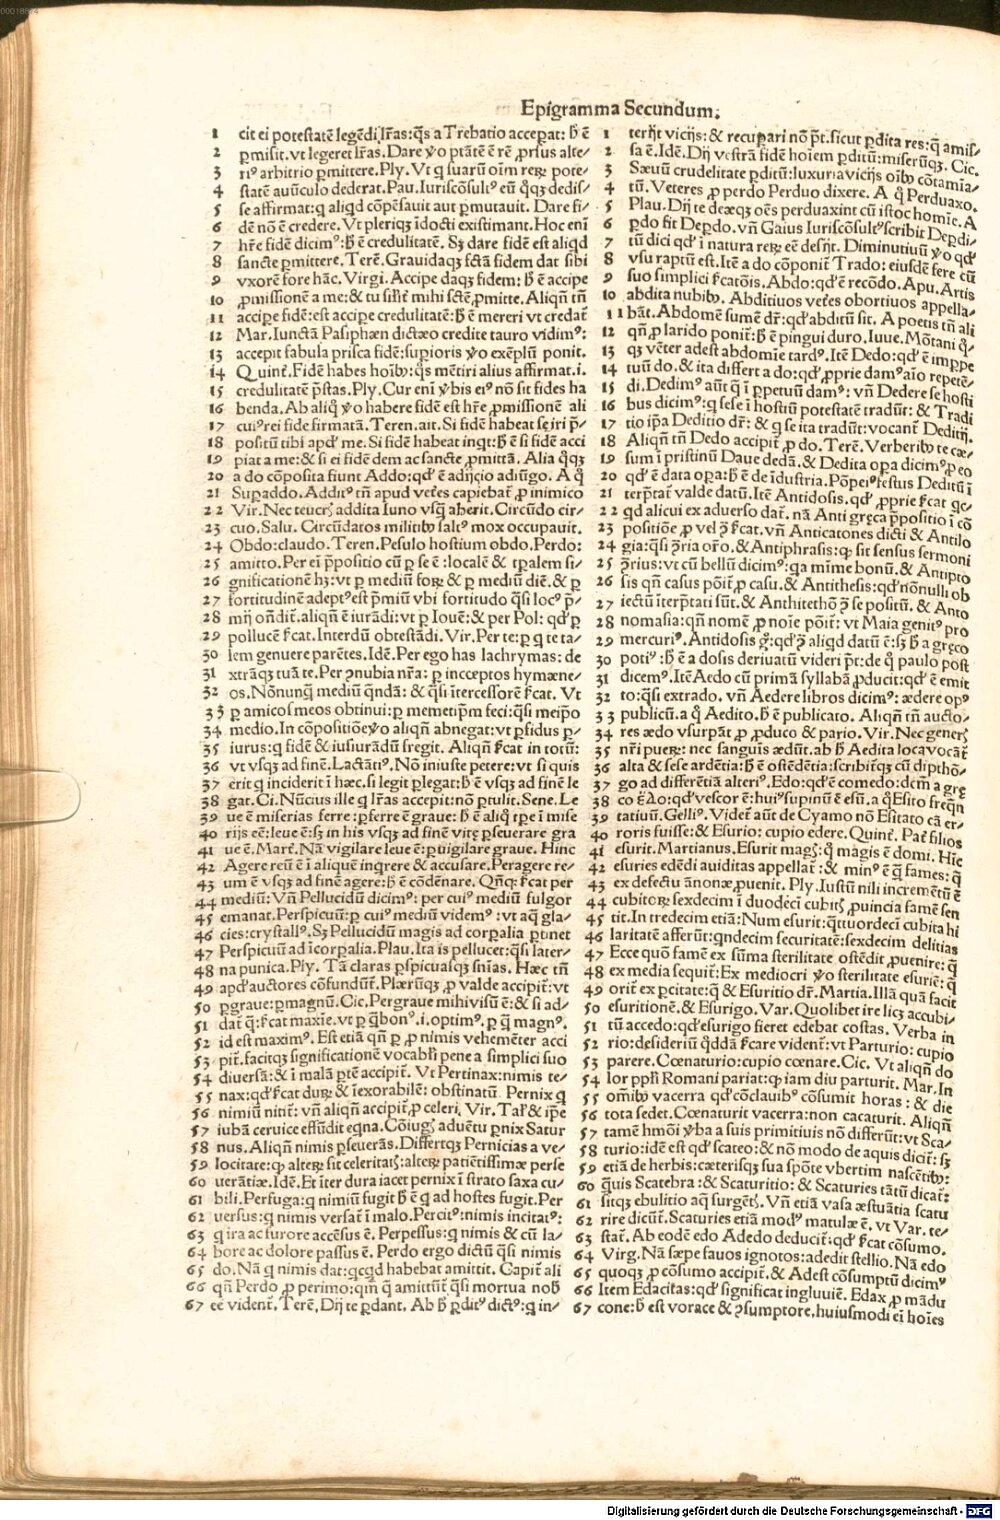 Epigramma Secundum.
1 cit ei potestatē legēdi lr̄as: q̄s a Trebatio acceꝑat: h̄ ē
2 ꝑmisit. vt legeret lr̄as. Dare ỽo ptātē ē rē ꝓrsus alte/
3 riꝰ arbitrio ꝑmittere. Ply. Vt q suarū oīm reꝝ pote/
4 statē auūculo dederat. Pau. Iuriscōsultꝰ eū q̄qꝫ dedis/
5 se affirmat: q aliqd cōpēsauit aut ꝑmutauit. Dare fi/
6 dē nō ē credere. Vt pleriqꝫ īdocti existimant. Hoc enī
7 hr̄e fidē dicimꝰ: h̄ ē credulitatē. Sꝫ dare fidē est aliqd
8 sancte ꝑmittere. Terē. Grauidaqꝫ fctā fidem dat sibi
9 vxorē fore hāc. Virgi. Accipe daqꝫ fidem: h̄ ē accipe
10 ꝓmissionē a me: & tu sil̄r mihi sctē ꝓmitte. Aliqn̄ tn̄
11 accipe fidē: est accipe credulitatē: h̄ ē mereri vt credat̄
12 Mar. Iunctā Pasiphaen dictæo credite tauro vidimꝰ:
13 accepit fabula prisca fidē: suꝑioris ỽo exēplū ponit.
14 Quint̄. Fidē habes hoībꝰ: q̄s mētiri alius affirmat. i.
15 credulitatē p̄stas. Ply. Cur enī ỽbis eiꝰ nō sit fides ha
16 benda. Ab aliq̄ ỽo habere fidē est hr̄e ꝓmissionē ali
17 cuiꝰ rei fide firmatā. Teren. ait. Si fidē habeat se iri p̄/
18 positū tibi apd' me. Si fidē habeat inqt: h̄ ē si fidē acci
19 piat a me: & si ei fidē dem ac sancte ꝓmittā. Alia q̄qꝫ
20 a do cōposita fiunt Addo: qd' ē adijcio adiūgo. A q̄
21 Suꝑaddo. Additꝰ tn̄ apud vetēs capiebat̄ ꝓ inimico
22 Vir. Nec teucrꝭ addita Iuno vsq̄ aberit. Circūdo cir/
23 cuo. Salu. Circūdatos militibꝰ saltꝰ mox occupauit.
24 Obdo: claudo. Teren. Pesulo hostium obdo. Perdo:
25 amitto. Per ei p̄positio cū ꝑ se ē: localē & tꝑalem si/
26 gnificationē hꝫ: vt ꝑ mediū foꝝ & ꝑ mediū diē. & ꝑ
27 fortitudinē adeptꝰ est p̄miū vbi fortitudo q̄si locꝰ p̄/
28 mij ondit̄. aliqn̄ ē iurādi: vt ꝑ Iouē: & per Pol: qd' ꝑ
29 pollucē f̄cat. Interdū obtestādi. Vir. Per te: ꝑ q te ta/
30 lem genuere parētes. Idē. Per ego has lachrymas: de
31 xtrāqꝫ tuā te. Per ꝯnubia nr̄a: ꝑ incœptos hymæne/
32 os. Nōnunq̄ mediū q̄ndā: & q̄si ītercessorē f̄cat. Vt
33 ꝑ amicos meos obtinui: ꝑ memetip̄m feci: q̄si meip̄o
34 medio. In cōpositiōe ỽo aliqn̄ abnegat: vt ꝑfidus ꝑ/
35 iurus: q fidē & iusiurādū fregit. Aliqn̄ f̄cat in totū:
36 vt vsqꝫ ad finē. Lactātiꝰ. Nō iniuste petere: vt si quis
37 erit q inciderit ī hæc. si legit ꝑlegat: h̄ ē vsqꝫ ad finē le
38 gat. Ci. Nūcius ille q lr̄as accepit: nō ꝑtulit. Sene. Le
39 ue ē miserias ferre: ꝑferre ē graue: h̄ ē aliq̄ tꝑe ī mise
40 rijs eē: leue ē: sꝫ in his vsqꝫ ad finē vitę ꝑseuerare gra
41 ue ē. Mart̄. Nā vigilare leue ē: ꝑuigilare graue. Hinc
42 Agere reū ē ī aliquē inqrere & accusare. Peragere re/
43 um ē vsqꝫ ad finē agere: h̄ ē cōdēnare. Qn̄qꝫ f̄cat per
44 mediū: Vn̄ Pellucidū dicimꝰ: per cuiꝰ mediū fulgor
45 emanat. Perspicuū: ꝑ cuiꝰ mediū videmꝰ: vt aq̄ gla/
46 cies: crystallꝰ. Sꝫ Pellucidū magis ad corꝑalia ꝑtinet
47 Perspicuū ad īcorꝑalia. Plau. Ita is pellucet: q̄si later/
48 na punica. Ply. Tā claras ꝑspicuasqꝫ sn̄ias. Hæc tn̄
49 apd' auctores cōfundūt̄. Plærūqꝫ ꝓ valde accipit̄: vt
50 ꝑgraue: ꝑmagnū. Cic. Pergraue mihi visū ē: & si ad/
51 dat̄ q̄: f̄cat maxīe. vt ꝑ q̄ bonꝰ. i. optimꝰ. ꝑ q̄ magnꝰ.
52 id est maximꝰ. Est etiā qn̄ ꝑ ꝓ nimis vehemēter acci
53 pit̄. facitqꝫ significationē vocabli pene a simplici suo
54 diuersā: & ī malā ꝑtē accipit̄. Vt Pertinax: nimis te/
55 nax: qd' f̄cat duꝝ & īexorabilē: obstinatū. Pernix q
56 nimiū nitit̄: vn̄ aliqn̄ accipit̄ ꝓ celeri. Vir. Tal' & ip̄e
57 iubā ceruice effūdit eqna. Cōiugꝭ aduētu ꝑnix Satur
58 nus. Aliqn̄ nimis ꝑseuerās. Differtqꝫ Pernicias a ve/
59 locitate: ꝙ alteꝝ sit celeritatꝭ: alteꝝ patiētissimæ perse
60 uerātiæ. Idē. Et īter dura iacet pernix ī strato saxa cu/
61 bili. Perfuga: q nimiū fugit h̄ ē q ad hostes fugit. Per
62 uersus: q nimis versat̄ ī malo. Percitꝰ: nimis incitatꝰ:
63 q ira ac furore accēsus ē. Perpessus: q nimis & cū la/
64 bore ac dolore passus ē. Perdo ergo dictū q̄si nimis
65 do. Nā q nimis dat: qcqd habebat amittit. Capit̄ ali
66 qn̄ Perdo ꝓ perimo: qm̄ q̄ amittūt̄ q̄si mortua nob̄
67 eē vident̄. Terē. Dij te ꝑdant. Ab h̄ ꝑditꝰ dictꝰ: q in/
1 terijt vicijs: & recuꝑari nō pt̄. sicut ꝑdita res: q̄ amis/
2 sa ē. Idē. Dij vestrā fidē hoīem ꝑditū: miserūqꝫ. Cic.
3 Sæuū crudelitate ꝑditū: luxuria vicijs oībꝰ cōtamīa/
4 tū. Veteres ꝓ perdo Perduo dixere. A q̄ Perduaxo.
5 Plau. Dij te deæqꝫ oēs perduaxint cū istoc homīe. A
6 ꝑdo fit Deꝑdo. vn̄ Gaius Iuriscōsultꝰ scribit Deꝑdi/
7 tū dici qd' ī natura reꝝ eē desijt. Diminutiuū ỽo qd'
8 vsu raptū est. Itē a do cōponit̄ Trado: eiusdē fere cū
9 suo simplici f̄catōis. Abdo: qd' ē recōdo. Apu. Artis
10 abdita nubibꝰ. Abditiuos vetēs obortiuos appella/
11 bāt. Abdomē sumē dr̄: qd' abditū sit. A poetis tn̄ ali
12 qn̄ ꝓ larido ponit̄: h̄ ē pingui duro. Iuue. Mōtani q̄/
13 qꝫ vēter adest abdomīe tardꝰ. Itē Dedo: qd' ē imꝑpe
14 tuū do. & ita differt a do: qd' ꝓprie damꝰ aīo repetē/
15 di. Dedimꝰ aūt q̄ ī ꝑpetuū damꝰ: vn̄ Dedere se hosti
16 bus dicimꝰ: q sese ī hostiū potestatē tradūt: & Tradi
17 tio ip̄a Deditio dr̄: & q se ita tradūt: vocant̄ Deditij.
18 Aliqn̄ tn̄ Dedo accipit̄ ꝓ do. Terē. Verberibꝰ te cæ/
19 sum ī pristinū Daue dedā. & Dedita oꝑa dicimꝰ ꝓ eo
20 qd' ē data oꝑa: h̄ ē de īdustria. Pōpeiꝰ festus Deditū ī
21 terp̄tat̄ valde datū. Itē Antidosis. qd' ꝓprie f̄cat qc/
22 qd alicui ex aduerso dat̄. nā Anti gręca p̄positio ī cō
23 positiōe ꝓ vel ꝯ̄ f̄cat. vn̄ Anticatones dicti & Antilo
24 gia: q̄si ꝯ̄ria or̄o. & Antiphrasis: ꝙ sit sensus sermoni
25 ꝯ̄rius: vt cū bellū dicimꝰ: qa mīme bonū. & Antipto
26 sis qn̄ casus pōit̄ ꝓ casu. & Antithesis: qd' nōnulli ob
27 iectū īterp̄tati sūt. & Anthitethō ꝯ̄ se positū. & Anto
28 nomasia: qn̄ nomē ꝓ noīe pōit̄: vt Maia genitꝰ pro
29 mercuriꝰ. Antidosis gꝰ: qd' ꝯ̄ aliqd datū ē: sꝫ h̄ a gręco
30 potiꝰ: h̄ ē a dosis deriuatū videri pt̄: de q̄ paulo post
31 dicemꝰ. Itē Aedo cū primā syllabā ꝓducit: qd' ē emit
32 to: q̄si extrado. vn̄ Aedere libros dicimꝰ: ædere opꝰ
33 publicū. a q̄ Aedito. h̄ ē publicato. Aliqn̄ tn̄ aucto/
34 res ædo vsurpāt ꝓ ꝓduco & pario. Vir. Nec generꝭ
35 nr̄i pueꝝ: nec sanguīs ædūt̄. ab h̄ Aedita loca vocat̄
36 alta & sese ardētia: h̄ ē ostēdētia: scribit̄qꝫ cū dipthō/
37 go ad differētiā alteriꝰ. Edo: qd' ē comedo: dcm̄ a grę
38 co ἔδο: qd' vescor ē: huiꝰ supinū ē esū. a q̄ Esito freqn̄
39 tatiuū. Gelliꝰ. Videt̄ aūt de Cyamo nō Esitato cā er/
40 roris fuisse: & Esurio: cupio edere. Quint̄. Pat̄ filios
41 esurit. Martianus. Esurit magꝭ: q̄ magis ē domi. Hīc
42 esuries edēdi auiditas appellat̄: & minꝰ ē q̄ fames: q̄
43 ex defectu ānonæ ꝓuenit. Ply. Iustū nili incremētū ē
44 cubitoꝝ sexdecim ī duodecī cubitꝭ ꝓuincia famē sen
45 tit. In tredecim etiā: Num esurit: q̄ttuordecī cubita hi
46 laritatē afferūt: qndecim securitatē: sexdecim delitias
47 Ecce quō famē ex sūma sterilitate ostēdit ꝓuenire: q̄
48 ex media sequit̄: Ex mediocri ỽo sterilitate esuriē: q̄
49 orit̄ ex ꝑcitate: q̄ & Esuritio dr̄. Martia. Illā quā facit
50 esuritionē. & Esurigo. Var. Quolibet ire licꝫ accubi/
51 tū accedo: qd' esurigo fieret edebat costas. Verba in
52 rio: desideriū q̄ddā f̄care vident̄: vt Parturio: cupio
53 parere. Cœnaturio: cupio cœnare. Cic. Vt aliqn̄ do
54 lor ppl̄i Romani pariat: ꝙ iam diu parturit. Mar. In
55 omībꝰ vacerra qd' cōclauibꝰ cōsumit horas: & die
56 tota sedet. Cœnaturit vacerra: non cacaturit. Aliqn̄
57 tamē hmōi ỽba a suis primitiuis nō differūt: vt Sca/
58 turio: idē est qd' scateo: & nō modo de aquis dicit̄: sꝫ
59 etiā de herbis: cæterisqꝫ sua spōte vbertim nascētibꝰ:
60 q̄uis Scatebra: & Scaturitio: & Scaturies tātū dicat̄:
61 sitqꝫ ebulitio aq̄ surgētꝭ. Vn̄ etiā vasa æstuātia scatu
62 rire dicūt̄. Scaturies etiā modꝰ matulæ ē. vt Var. te/
63 stat̄. Ab eodē edo Adedo deducit̄: qd' f̄cat cōsumo.
64 Virg. Nā sæpe fauos ignotos: adedit stellio. Nā edo
65 quoqꝫ ꝓ cōsumo accipit̄. & Adest cōsumptū dicimꝰ
66 Item Edacitas: qd' significat ingluuiē. Edax ꝓ mādu
67 cone: h̄ est vorace & ꝯsumptore. huiusmodi ei hoīes